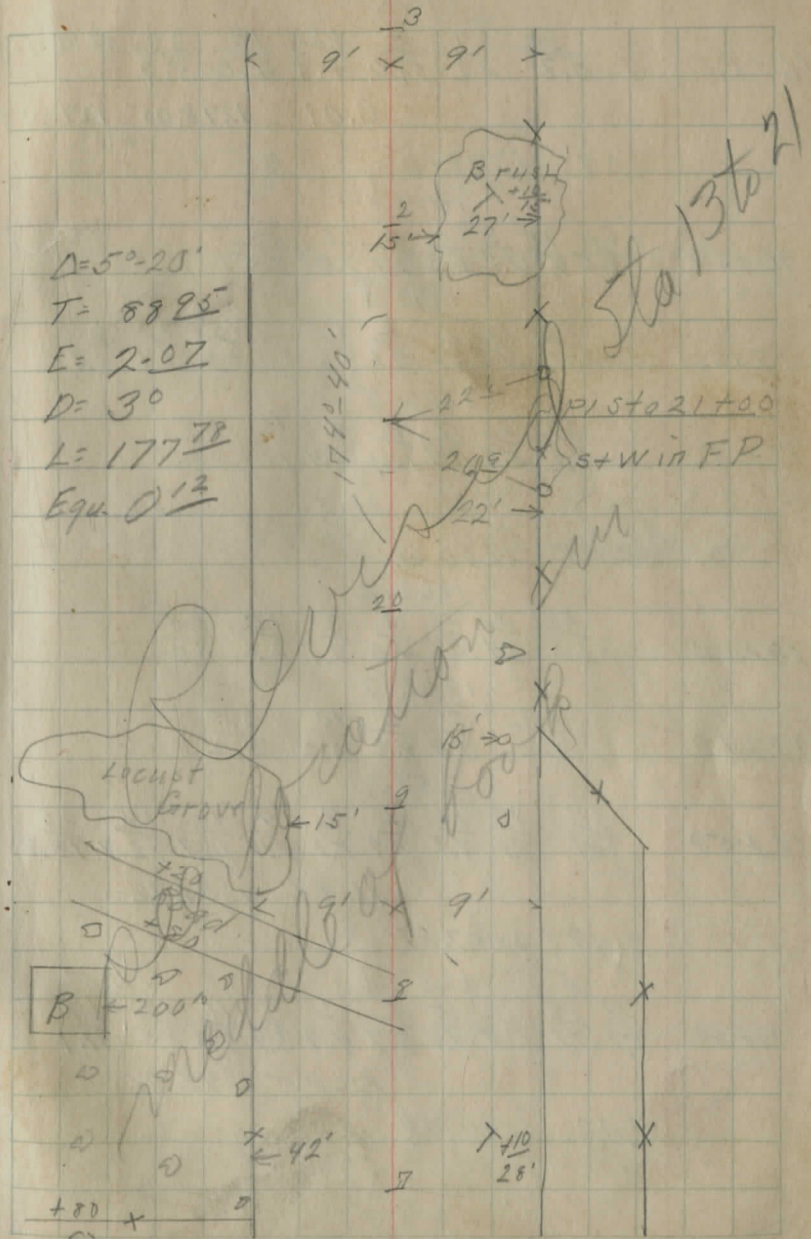 3
9' 9'
Brush
2
15' 27'
Sta 13 to 21
Δ=5°-20'
T= 88 95
E= 2.07
D= 3°
L= 177 78
Equ. 0 12
174°-40'
PI Sta 21+00
St W in FP
22'
20
15'
Locust
Grove
9
15'
9' 9'
8
B 200'
42'
+10
28'
7
+80
Revis
location in
middle of book